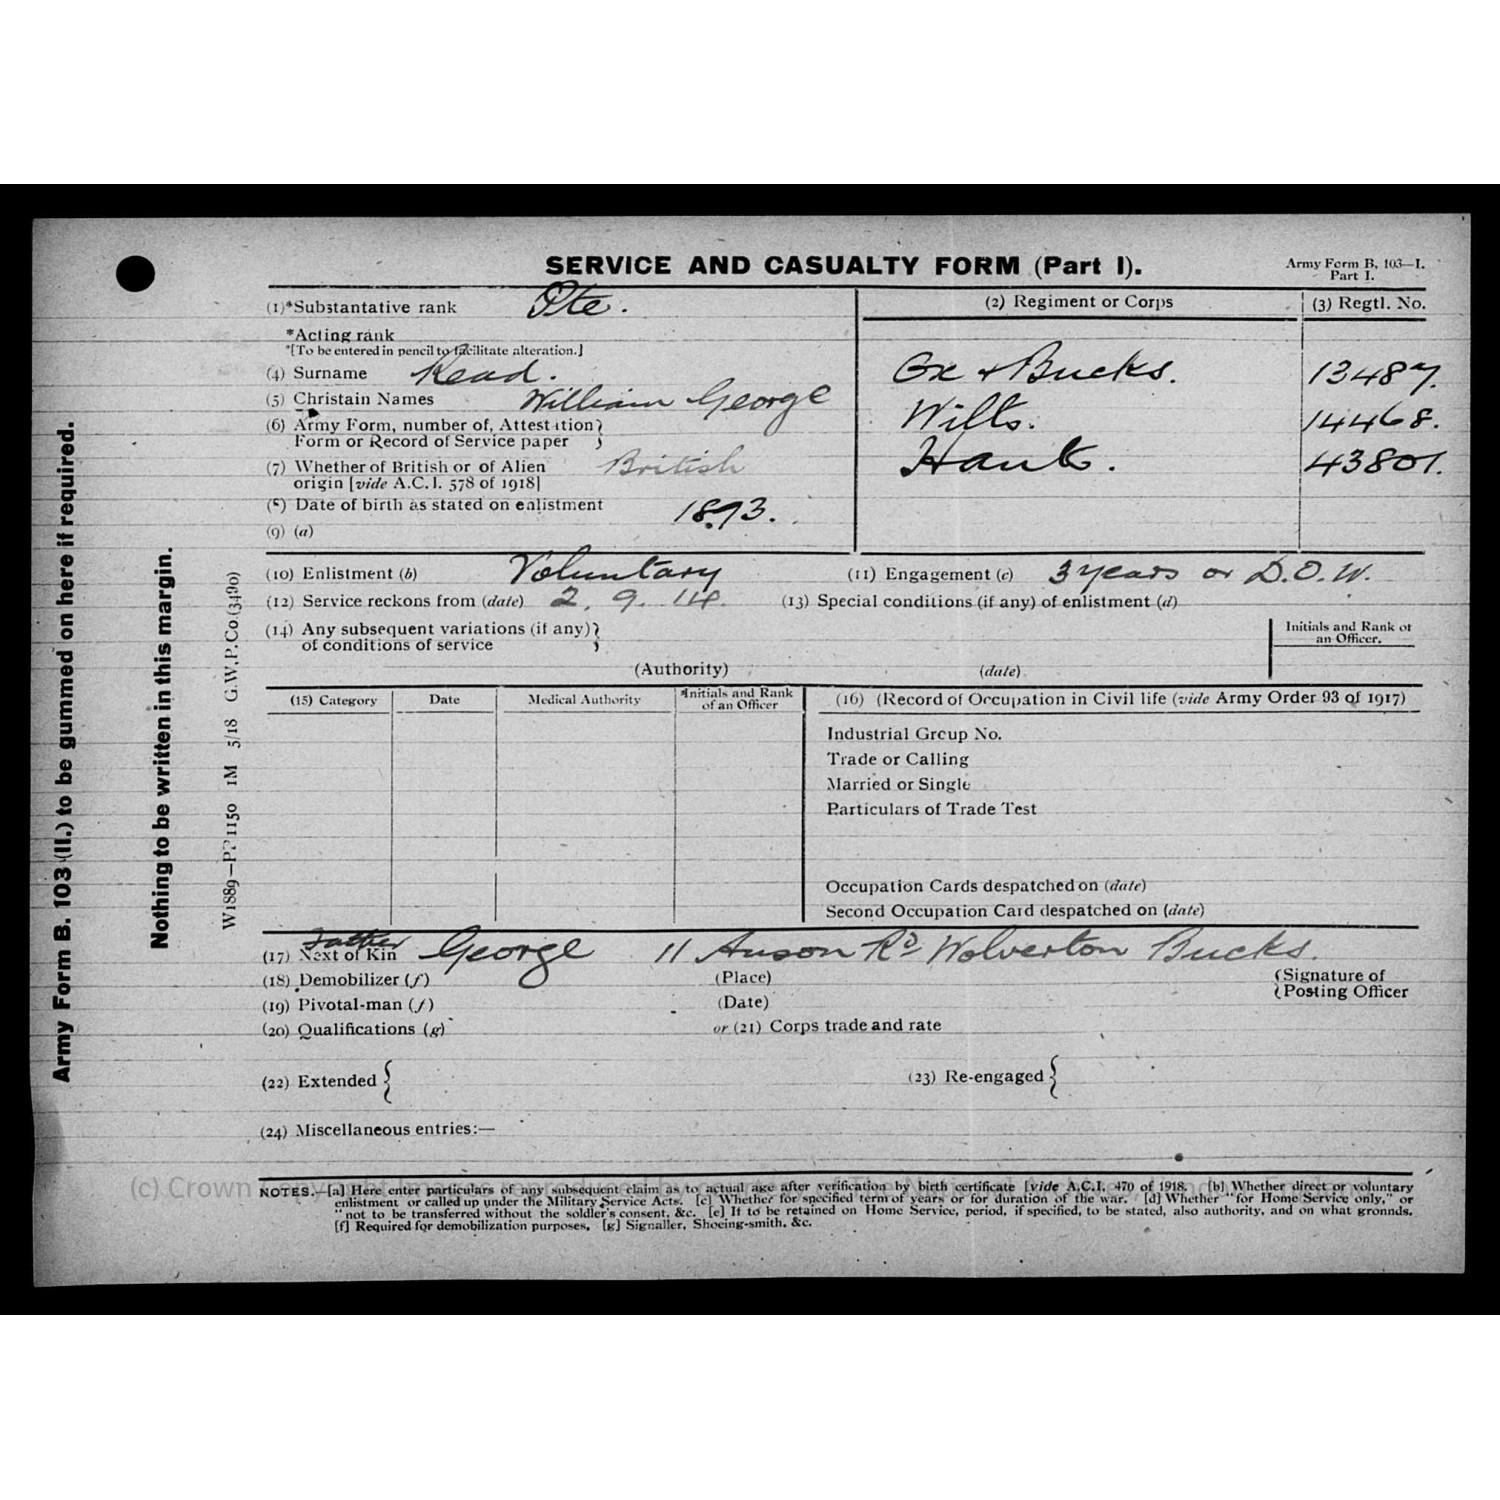 SERVICE AND CASUALTY FORM (Part I).
Army Form B, 103—I.
Part I.
(1) *Substantative rank Pte.
*Acting rank
*[To be entered in pencil to facilitate alteration.]
(4) Surname Read.
(5) Christain Names William George
(6) Army Form, number of, Attestation
Form or Record of Service paper
(7) Whether of British or of Alien British
origin [vide A.C.I. 578 of 1918]
(8) Date of birth as stated on enlistment 1893.
(9) (a)
(2) Regiment or Corps (3) Regtl. No.
Ox & Bucks. 13487.
Wilts. 14468.
Hants. 43801.
(10) Enlistment (b) Voluntary (11) Engagement (c) 3 years or D.O.W.
(12) Service reckons from (date) 2. 9. 14. (13) Special conditions (if any) of enlistment (d)
(14) Any subsequent variations (if any)
of conditions of service
Initials and Rank of
an Officer.
(Authority) (date)
(15) Category Date Medical Authority *Initials and Rank
of an Officer
(16) (Record of Occupation in Civil life (vide Army Order 93 of 1917)
Industrial Group No.
Trade or Calling
Married or Single
Particulars of Trade Test
Occupation Cards despatched on (date)
Second Occupation Card despatched on (date)
Father
(17) Next of Kin George 11 Anson Rd Wolverton Bucks.
(18) Demobilizer (f) (Place) Signature of
Posting Officer
(19) Pivotal-man (f) (Date)
(20) Qualifications (g) or (21) Corps trade and rate
(22) Extended { (23) Re-engaged {
(24) Miscellaneous entries:—
NOTES.—[a] Here enter particulars of any subsequent claim as to actual age after verification by birth certificate [vide A.C.I. 470 of 1918. [b] Whether direct or voluntary
enlistment or called up under the Military Service Acts. [c] Whether for specified term of years or for duration of the war. [d] Whether "for Home Service only," or
"not to be transferred without the soldier's consent, &c. [e] If to be retained on Home Service, period, if specified, to be stated, also authority, and on what grounds.
[f] Required for demobilization purposes, [g] Signaller, Shoeing-smith, &c.
Army Form B. 103 (II.) to be gummed on here if required.
Nothing to be written in this margin.
W1889—PP1150 1M 5/18 G.W.P.Co.(3490)
(c) Crown